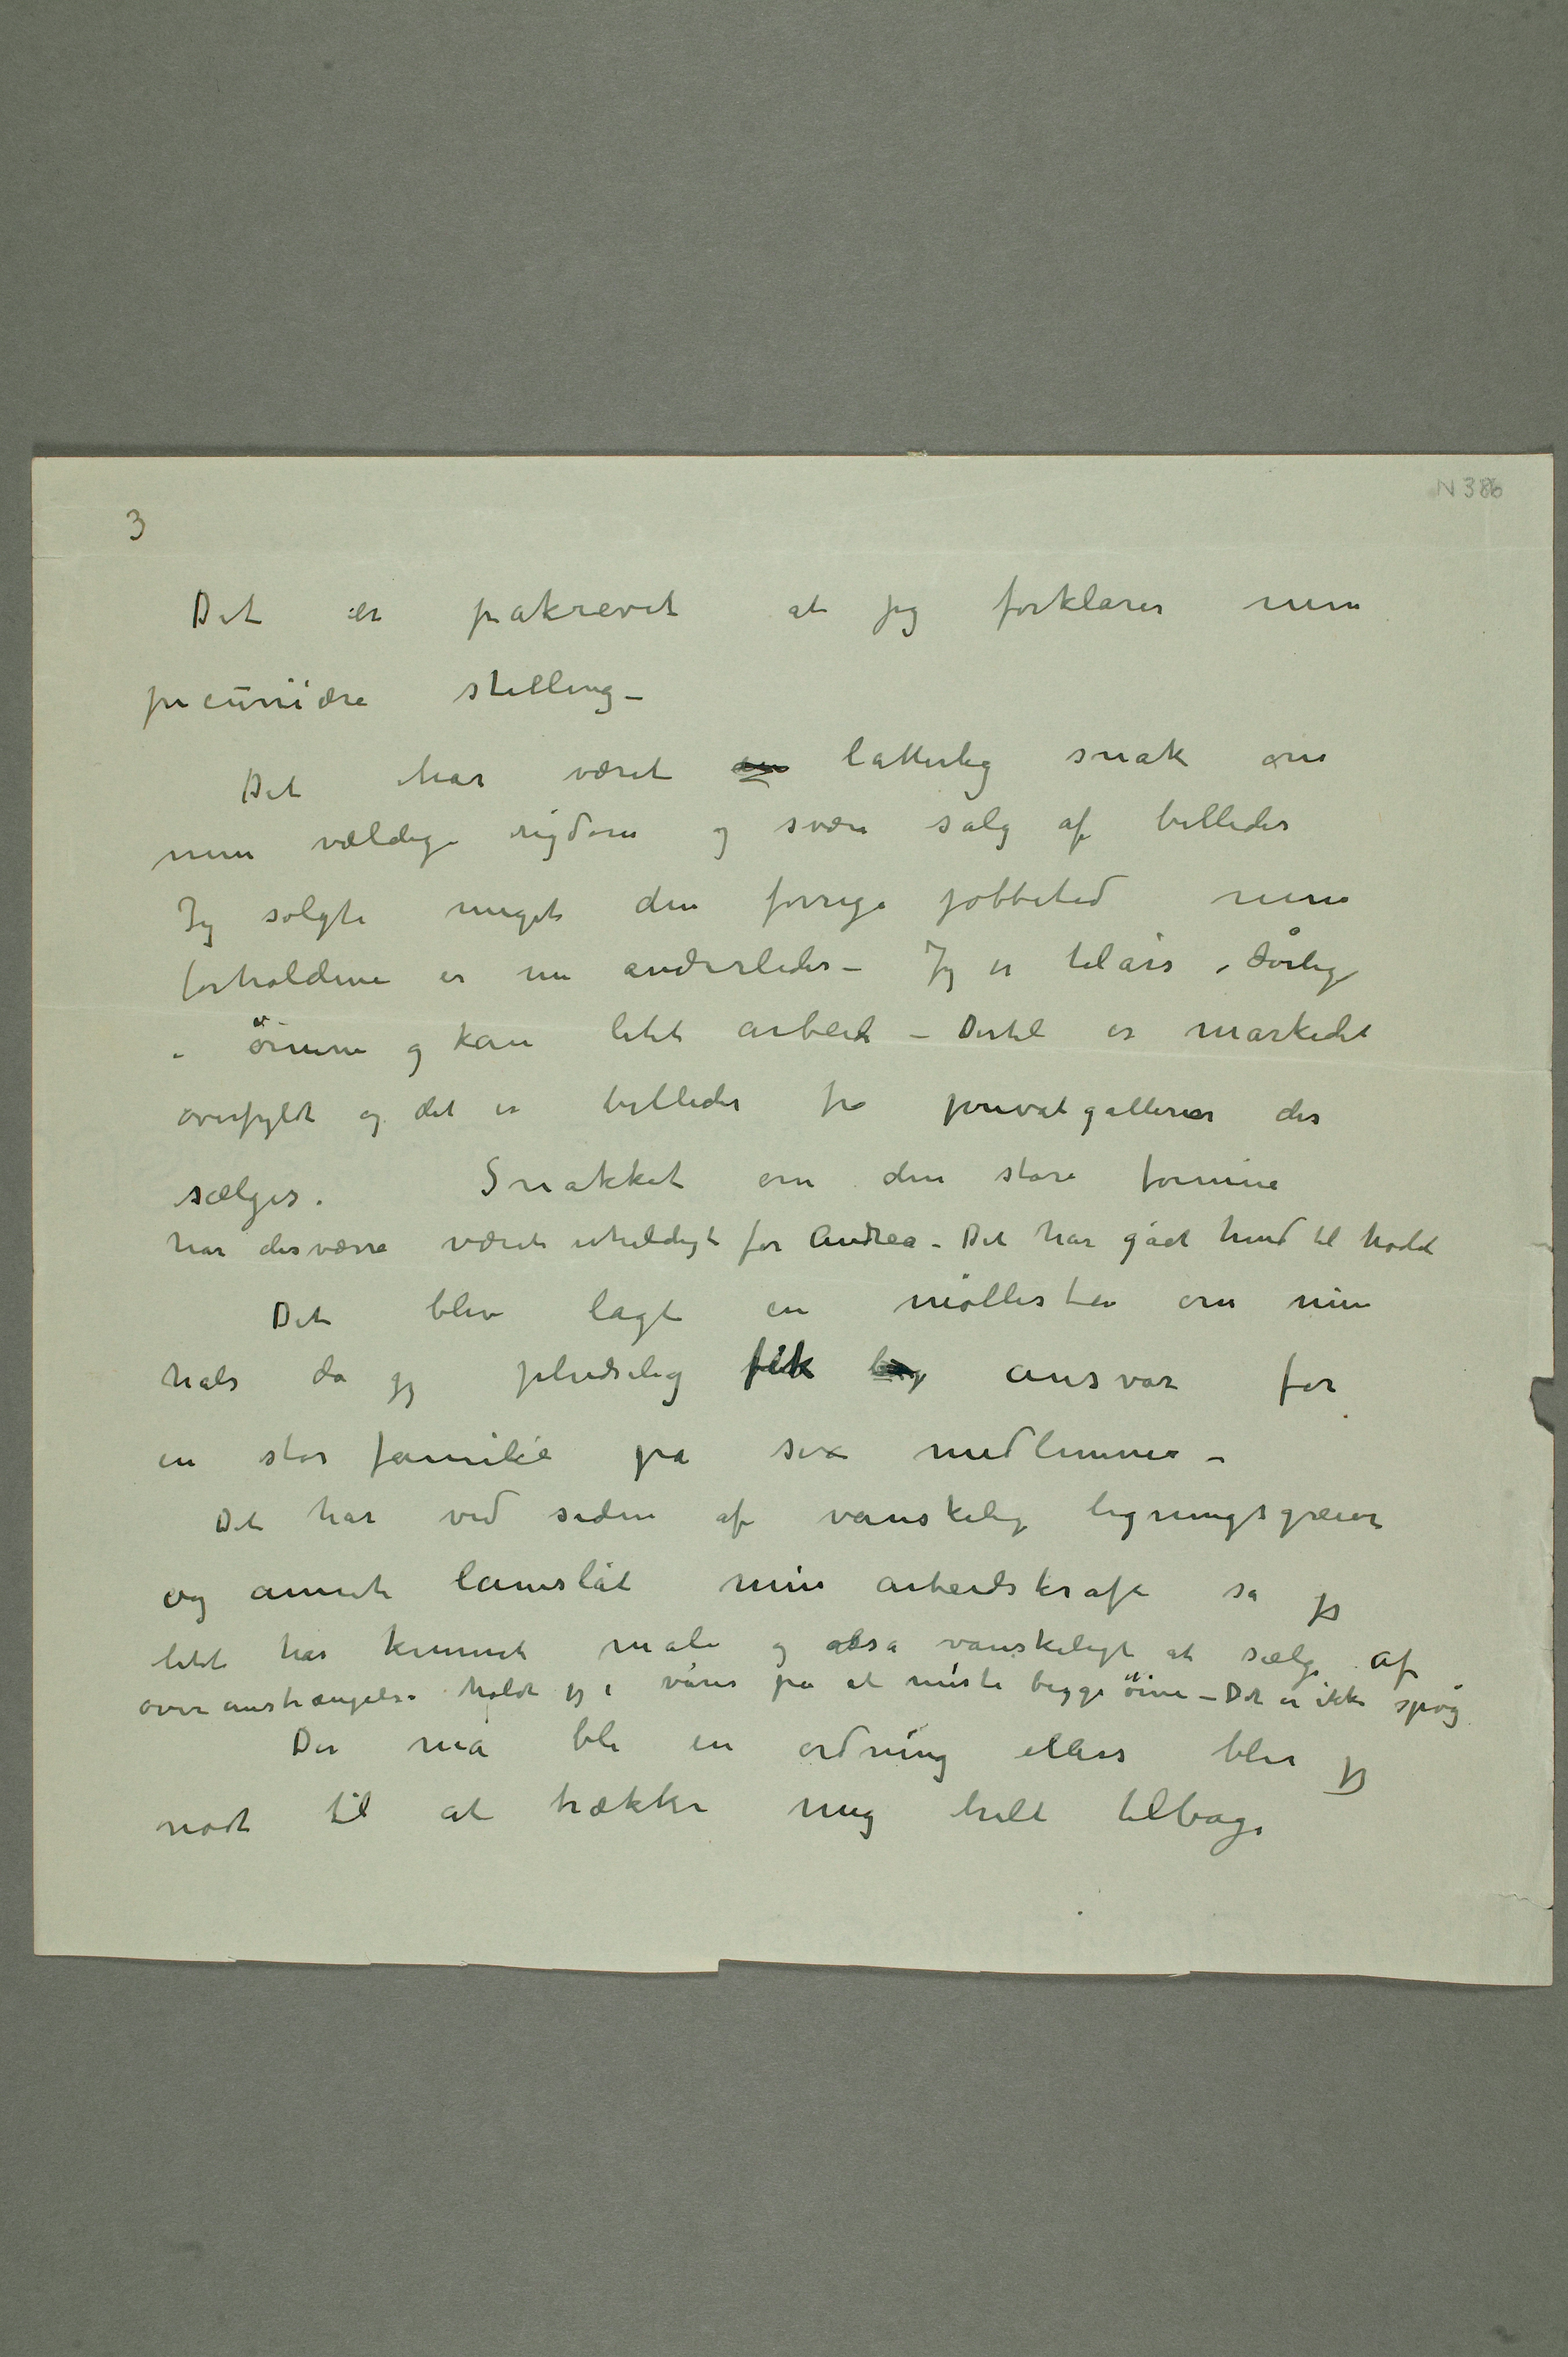 N 386
3
Det er påkrevet at jeg forklarer min
pecuniære stilling –
Det har været en latterlig snak om
min vældige rigdom og svære salg af billeder
Jeg solgte meget den forrige jobbetid men
forholdene er nu anderledes – Jeg er tilårs, dårlig
i öinene og kan litet arbeide – Dertil er markedet
overfyldt og det er billeder fra privatgallerier der
sælges. Snakket om den store formue
har desværre været uheldigt for Andrea – Det har gået hend til hodet
Det blev lagt en möllesten om min
hals da jeg pludselig fik ansvar for
en stor familie på sex medlemmer –
Det har ved siden af vanskelig ligningsgreier
og annet lamslåt min arbeidskraft så jeg
litet har kunnet male og også vanskeligt at sælge af
overanstrængelse holdt jeg i våres på at miste begge öine – Det er ikke spög
Der må bli en ordning ellers blir jeg
nödt til at trække mig helt tilbage